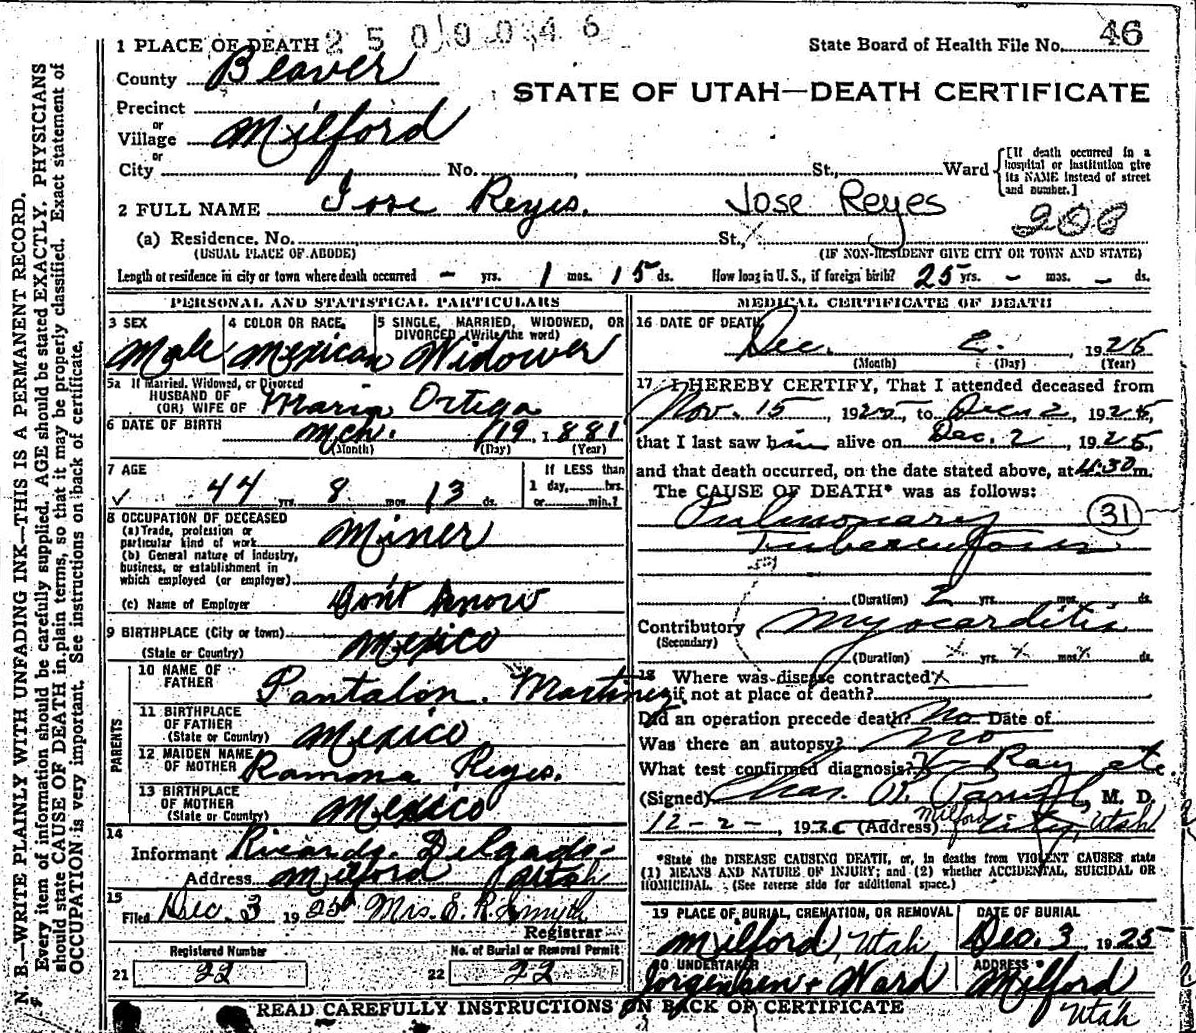 2500046
1 PLACE OF DEATH
State Board of Health File No. 46
County Beaver
STATE OF UTAH—DEATH CERTIFICATE
Precinct
or
Village Milford
or
City No. St., Ward
[If death occurred in a hospital or institution give its NAME instead of street and number.]
2 FULL NAME Jose Reyes. Jose Reyes
200
(a) Residence. No. St.,
(USUAL PLACE OF ABODE) (IF NON-RESIDENT GIVE CITY OR TOWN AND STATE)
Length of residence in city or town where death occurred — yrs. 1 mos. 15 ds. How long in U. S., if foreign birth? 25 yrs. — mos. — ds.
PERSONAL AND STATISTICAL PARTICULARS
3 SEX
Male
4 COLOR OR RACE
Mexican
5 SINGLE, MARRIED, WIDOWED, OR
DIVORCED (Write the word)
Widower
5a If Married, Widowed, or Divorced
HUSBAND OF
(OR) WIFE OF Maria Ortega
6 DATE OF BIRTH Mch. 19 1881
(Month) (Day) (Year)
7 AGE
44 yrs. 8 mos. 13 ds.
If LESS than
1 day, hrs.
or min.?
8 OCCUPATION OF DECEASED
(a) Trade, profession or
particular kind of work Miner
(b) General nature of industry,
business, or establishment in
which employed (or employer)
(c) Name of Employer Don't know
9 BIRTHPLACE (City or town)
(State or Country) Mexico
PARENTS
10 NAME OF
FATHER Pantalon. Martinez
11 BIRTHPLACE
OF FATHER
(State or Country) Mexico
12 MAIDEN NAME
OF MOTHER Ramona Reyes.
13 BIRTHPLACE
OF MOTHER
(State or Country) Mexico
14
Informant Ricardo Delgado
Address Milford Utah
15
Filed Dec. 3 1925 Mrs. E. R. Smyth
Registrar
Registered Number
21 22
No. of Burial or Removal Permit
22 22
MEDICAL CERTIFICATE OF DEATH
16 DATE OF DEATH
Dec. 2. 1925
(Month) (Day) (Year)
17 I HEREBY CERTIFY, That I attended deceased from
Nov. 15, 1925, to Dec 2, 1925,
that I last saw him alive on Dec. 2, 1925,
and that death occurred, on the date stated above, at 4:30 m.
The CAUSE OF DEATH* was as follows:
Pulmonary 31
Tuberculosis
(Duration) 2 yrs. mos. ds.
Contributory Myocarditis
(Secondary)
(Duration) x yrs. x mos. x ds.
18 Where was disease contracted x
if not at place of death?
Did an operation precede death? No Date of
Was there an autopsy? No
What test confirmed diagnosis? X-Ray etc.
(Signed) Chas. R. , M. D.
12-2-, 1925 (Address) Milford City, Utah
*State the DISEASE CAUSING DEATH, or, in deaths from VIOLENT CAUSES state
(1) MEANS AND NATURE OF INJURY; and (2) whether ACCIDENTAL, SUICIDAL OR
HOMICIDAL. (See reverse side for additional space.)
19 PLACE OF BURIAL, CREMATION, OR REMOVAL
Milford, Utah
DATE OF BURIAL
Dec. 3 1925
20 UNDERTAKER
Jorgensen & Ward
ADDRESS
Milford
Utah
READ CAREFULLY INSTRUCTIONS ON BACK OF CERTIFICATE
N. B.—WRITE PLAINLY WITH UNFADING INK—THIS IS A PERMANENT RECORD.
Every item of information should be carefully supplied. AGE should be stated EXACTLY. PHYSICIANS
should state CAUSE OF DEATH in plain terms, so that it may be properly classified. Exact statement of
OCCUPATION is very important. See instructions on back of certificate.